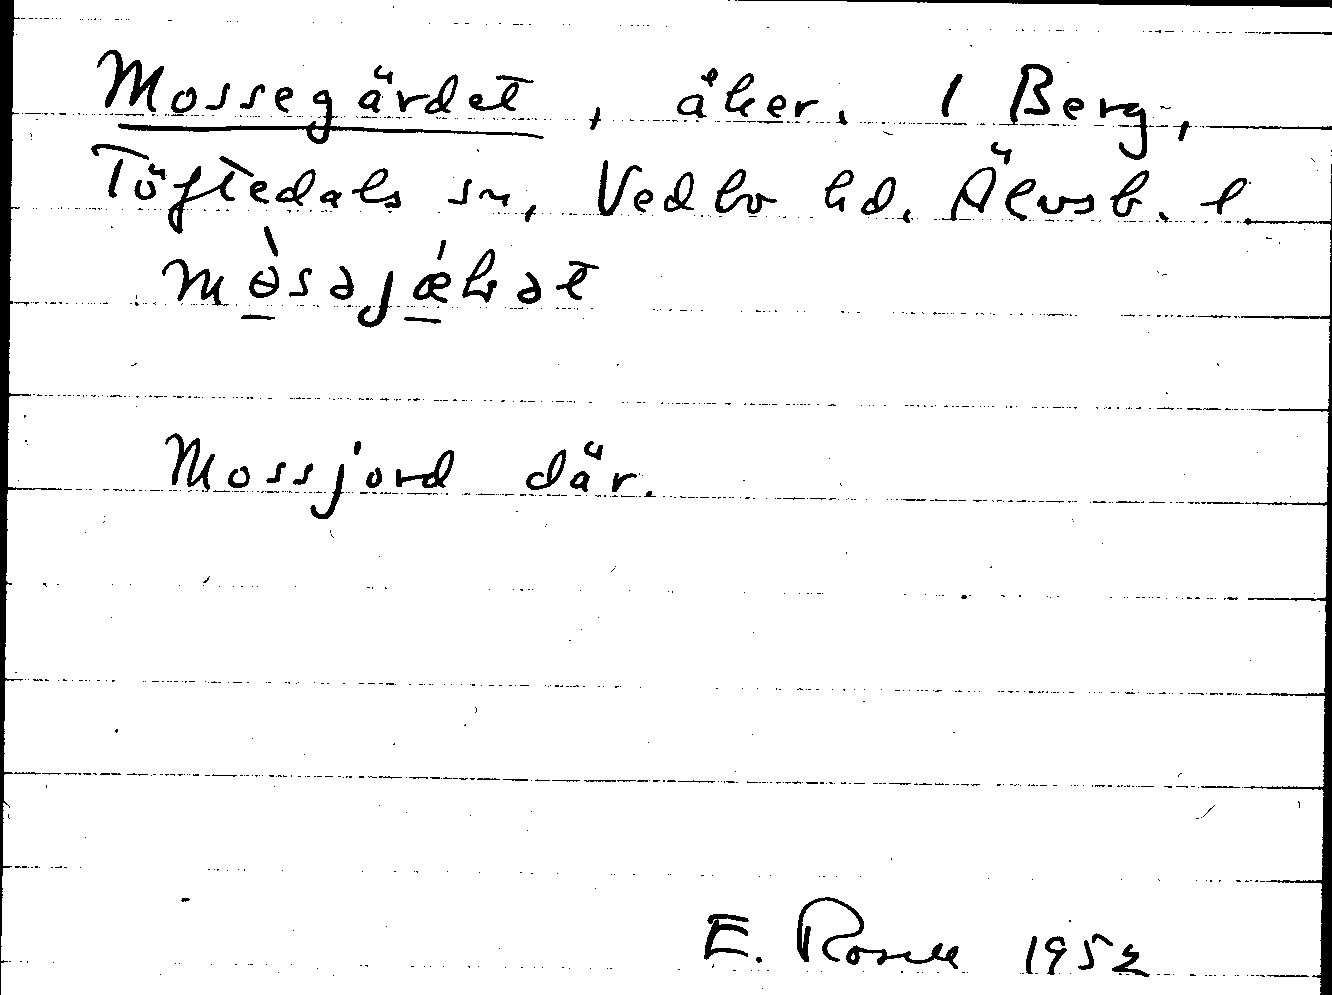 Mossegärdet, åker. 1 Berg,
Töftedals sn, Vedbo hd. Älvsb. l.
mɵ̀səjǽlət
Mossjord där.
E. Rosell 1952